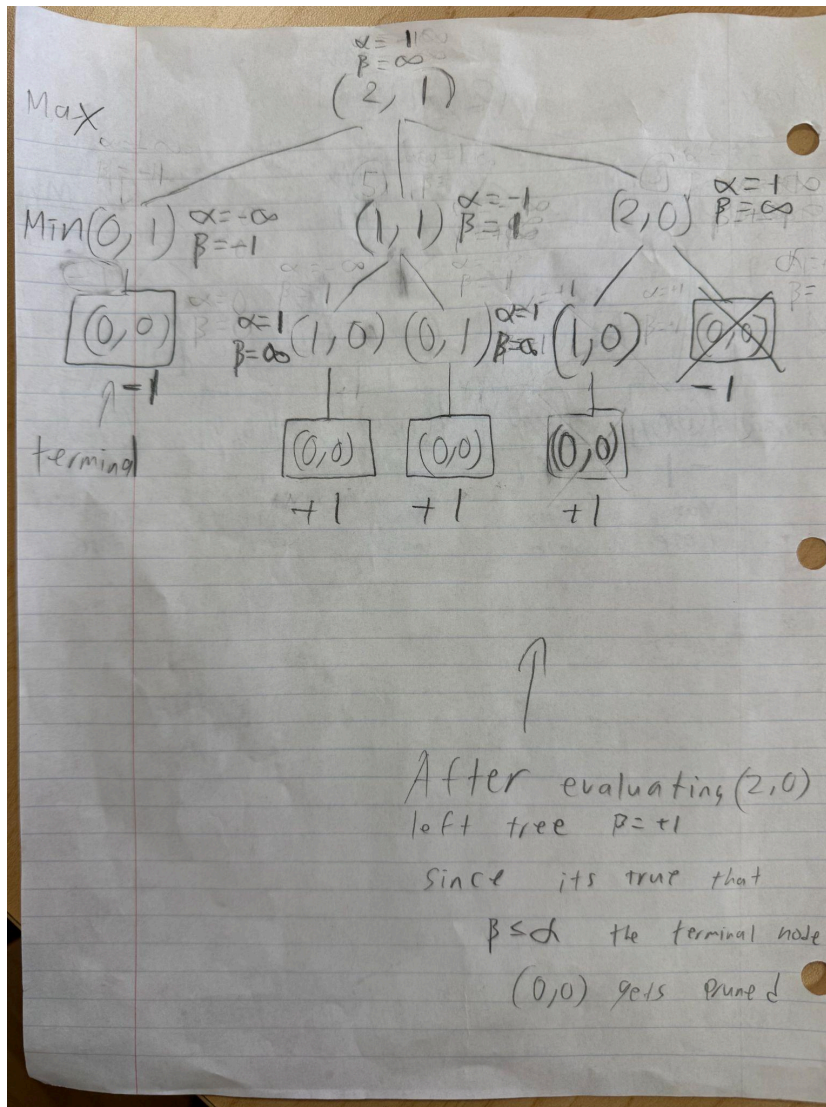 α = 1
β = ∞
(2, 1)
Max
Min (0, 1) α = -∞
β = -1
(1, 1) α = -1
β = 1
(2, 0) α = 1
β = ∞
(0, 0)
-1
terminal
α = 1
β = ∞
(1, 0)
(0, 1) α = 1
β = ∞
(1, 0)
(0, 0)
-1
(0, 0)
+1
(0, 0)
+1
(0, 0)
+1
After evaluating (2, 0)
left tree β = +1
Since its true that
β ≤ α the terminal node
(0, 0) gets pruned